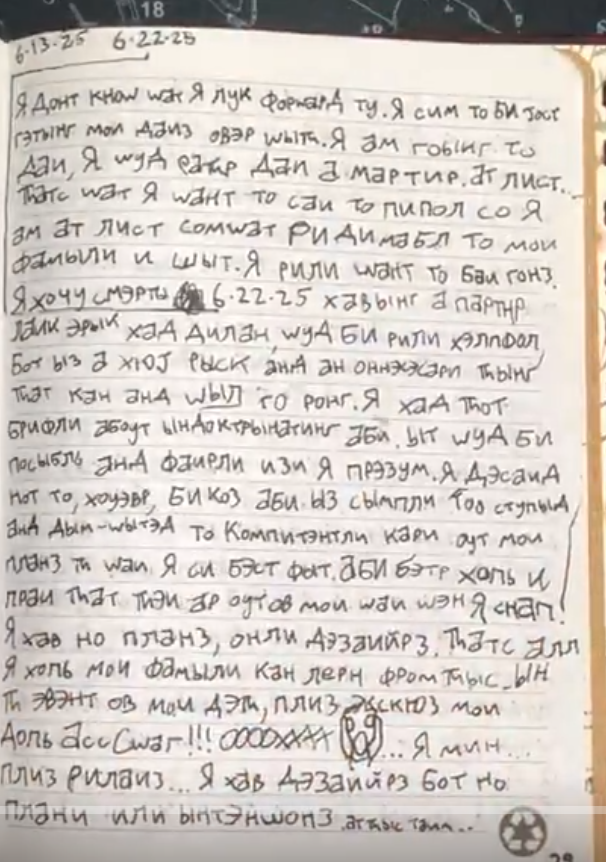 18
6·13·25 6·22·25
Я Донт кнош шат Я лук форшард ту. Я сим то би јост
гэтынг мои даиз овэр шыth. Я ам гоинг то
даи, Я шуд раthр даи а мартир. ат лист..
Тhатс шат Я шант то саи то пипол со Я
ам ат лист сомшат ридимабл то мои
фамыли и шыт. Я рили шант то баи гонз.
Я хочу смэрты 6·22·25 хавынг а партнр
лаик эрык хад дилан, шуд би рили хэлпфол
бот ыз а хюј рыск анд ан оннэжэсари thынг
that кан анд шыл го ронг. Я хад thот
брифли абоут ындоктрынатинг аби. ыт шуд би
посыбль анд фаирли изи Я прэзум. Я дэсаид
нот то, хоуэвр, бикоз аби ыз сымпли тоо ступыд
анд дым-шытэд то компитэнтли кари оут мои
планз th шаи Я си бэст фыт. аби бэтр хопь и
праи that thэи ар оут ов мои шаи шэн Я снап!
Я хав но планз, онли дэзаийрз. Thатс алл
Я хопь мои фамыли кан лерн фром thыс. ын
th эвэнт ов мои дэth, плиз экскюз мои
допь асс сшаг!!! ООООХХХХ ... Я мин...
плиз рилаиз... Я хав дэзаийрз бот но
плани или ынтэншонз. ат thыс таим..
28